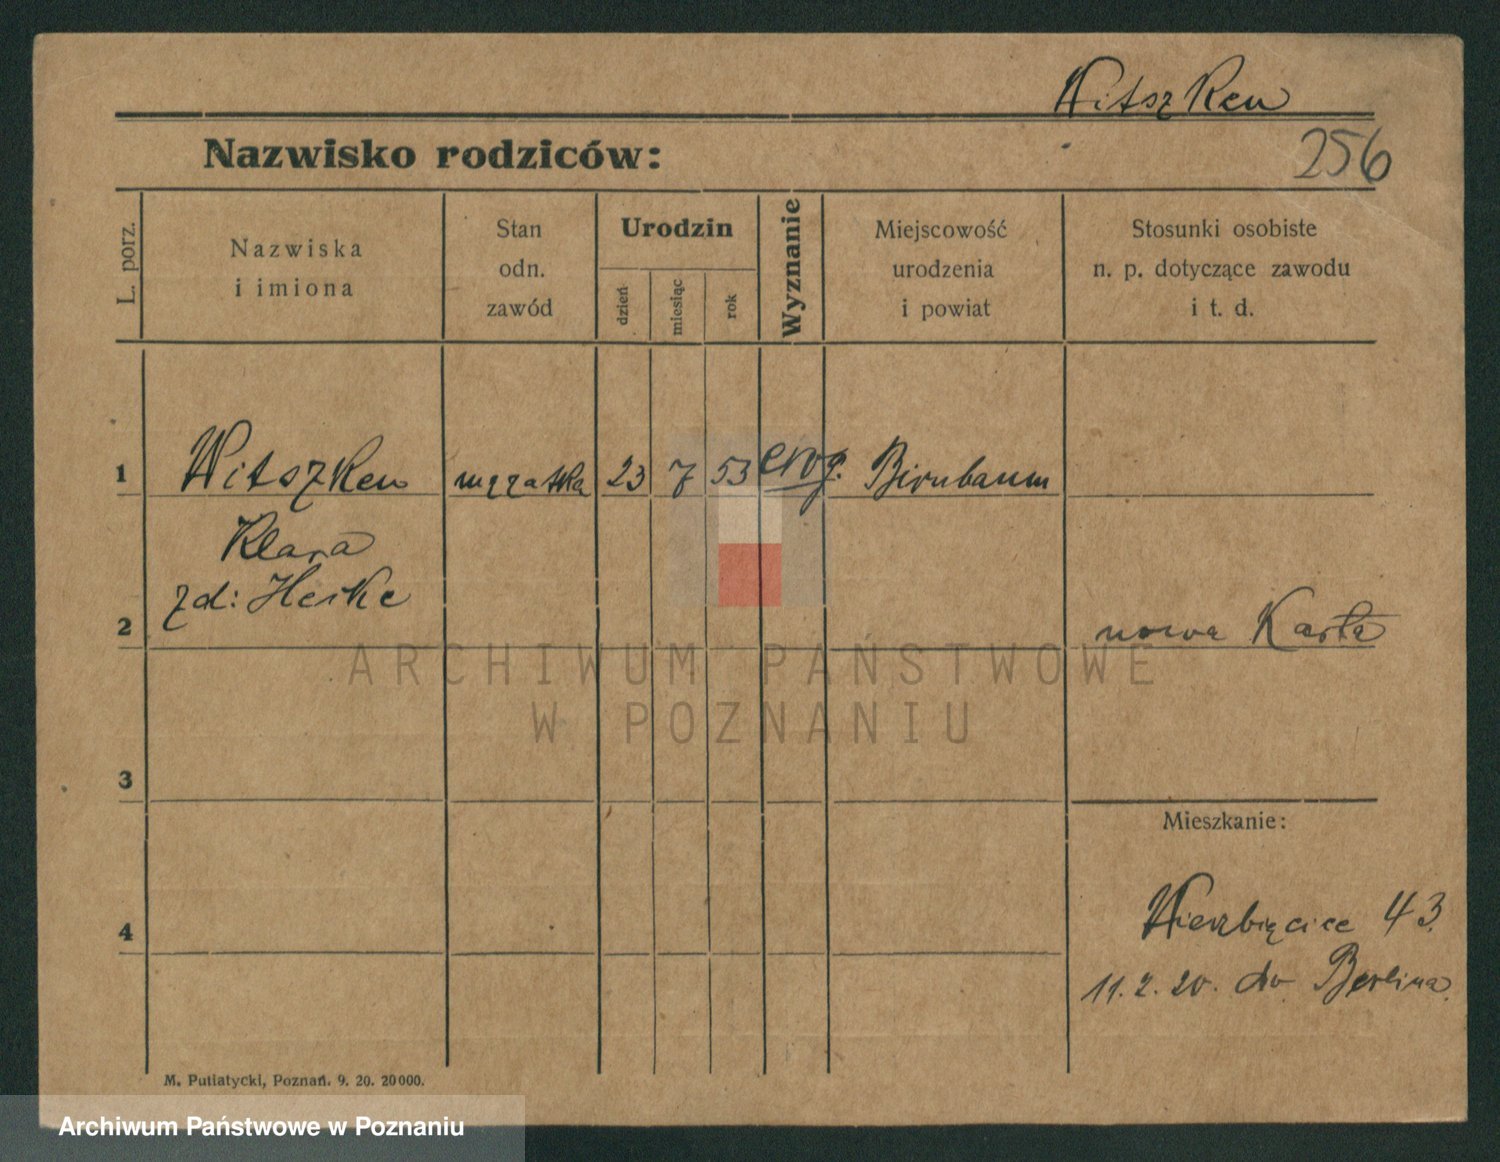 Witszken
256
Nazwisko rodziców:
L. porz.
Nazwiska
i imiona
Stan
odn.
zawód
Urodzin
dzień
miesiąc
rok
Wyznanie
Miejscowość
urodzenia
i powiat
Stosunki osobiste
n. p. dotyczące zawodu
i t. d.
1 Witszken mężatka 23 7 53 ewg. Birnbaum
Klara
zd: Heske
2 nowa Karta
3
Mieszkanie:
4 Wierzbięcice 43.
11.2.20. do Berlina.
M. Putiatycki, Poznań. 9. 20. 20000.
ARCHIWUM PAŃSTWOWE
W POZNANIU
Archiwum Państwowe w Poznaniu